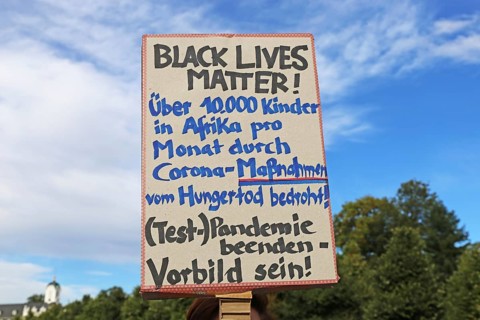 BLACK LIVES
MATTER!
Über 10.000 Kinder
in Afrika pro
Monat durch
Corona-Maßnahmen
vom Hungertod bedroht!
(Test-)Pandemie
beenden-
Vorbild sein!